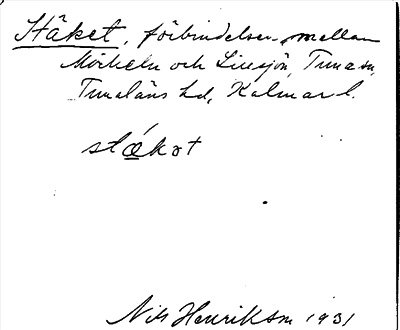 Stäket, förbindelsen mellan
Mörkeln och Linsjön, Tuna sn,
Tunaläns hd, Kalmar l.
stǽkət
Nils Henrikson 1931